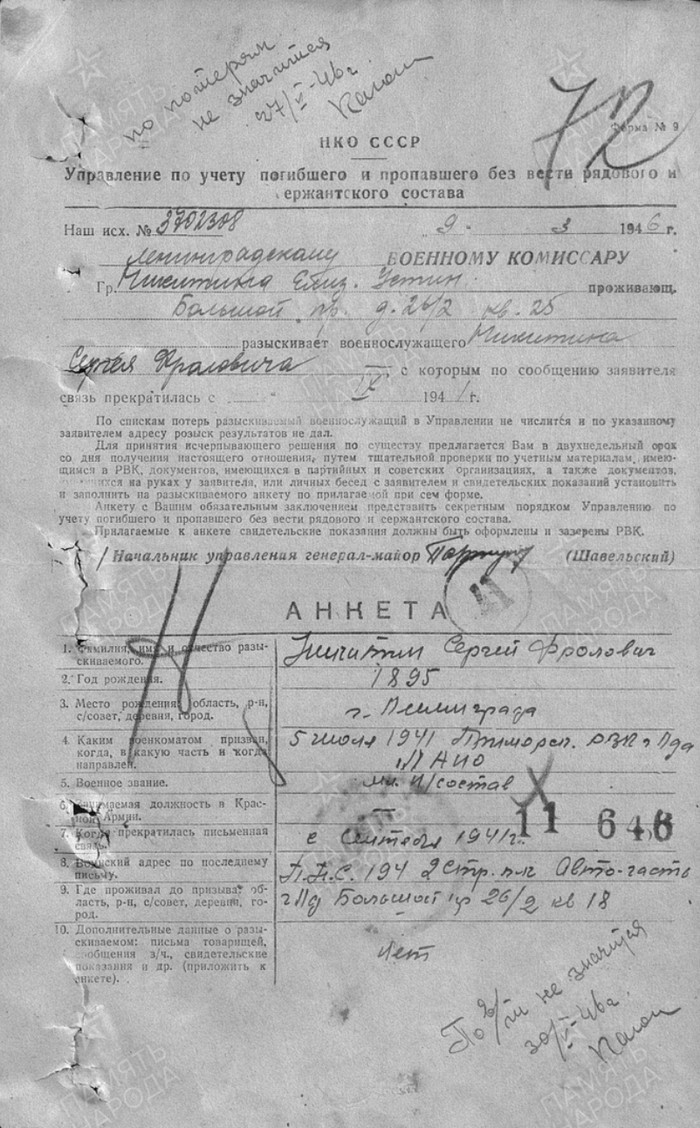 по потерям
не значится
27/V-46г.
72
Форма № 9
НКО СССР
Управление по учету погибшего и пропавшего без вести рядового и
сержантского состава
Наш исх. № 3702308 9. 3 1946 г.
Ленинградскому ВОЕННОМУ КОМИССАРУ
Гр. Никитина Елиз. Устин. проживающ.
Большой пр. д. 26/2 кв. 25
разыскивает военнослужащего Никитина
Сергея Фроловича с которым по сообщению заявителя
связь прекратилась с IX 1941 г.
По спискам потерь разыскиваемый военнослужащий в Управлении не числится и по указанному
заявителем адресу розыск результатов не дал.
Для принятия исчерпывающего решения по существу предлагается Вам в двухнедельный срок
со дня получения настоящего отношения, путем тщательной проверки по учетным материалам, имею-
щимся в РВК, документов, имеющихся в партийных и советских организациях, а также документов,
имеющихся на руках у заявителя, или личных бесед с заявителем и свидетельских показаний установить
и заполнить на разыскиваемого анкету по прилагаемой при сем форме.
Анкету с Вашим обязательным заключением представить секретным порядком Управлению по
учету погибшего и пропавшего без вести рядового и сержантского состава.
Прилагаемые к анкете свидетельские показания должны быть оформлены и заверены РВК.
Начальник управления генерал-майор (Шавельский)
41
АНКЕТА
1. Фамилия, имя и отчество разы-
скиваемого. Никитин Сергей Фролович
2. Год рождения. 1895
3. Место рождения: область, р-н,
с/совет, деревня, город. г. Ленинграда
4. Каким военкоматом призван,
когда, в какую часть и когда
направлен. 5 июля 1941 Приморск. РВК г Л-да
ЛАНО
5. Военное звание. мл. н/состав
6. Занимаемая должность в Крас-
ной Армии.
7. Когда прекратилась письменная
связь. с Сентября 1941 г. 11 646
8. Воинский адрес по последнему
письму. П.П.С. 194 2 стр. полк Авто-часть
9. Где проживал до призыва: об-
ласть, р-н, с/совет, деревня, го-
род. г Л-д Большой пр 26/2 кв 18
10. Дополнительные данные о разы-
скиваемом: письма товарищей,
сообщения з/ч., свидетельские
показания и др. (приложить к
анкете). Нет
По не значится
30/V-46г.
ПАМЯТЬ НАРОДА